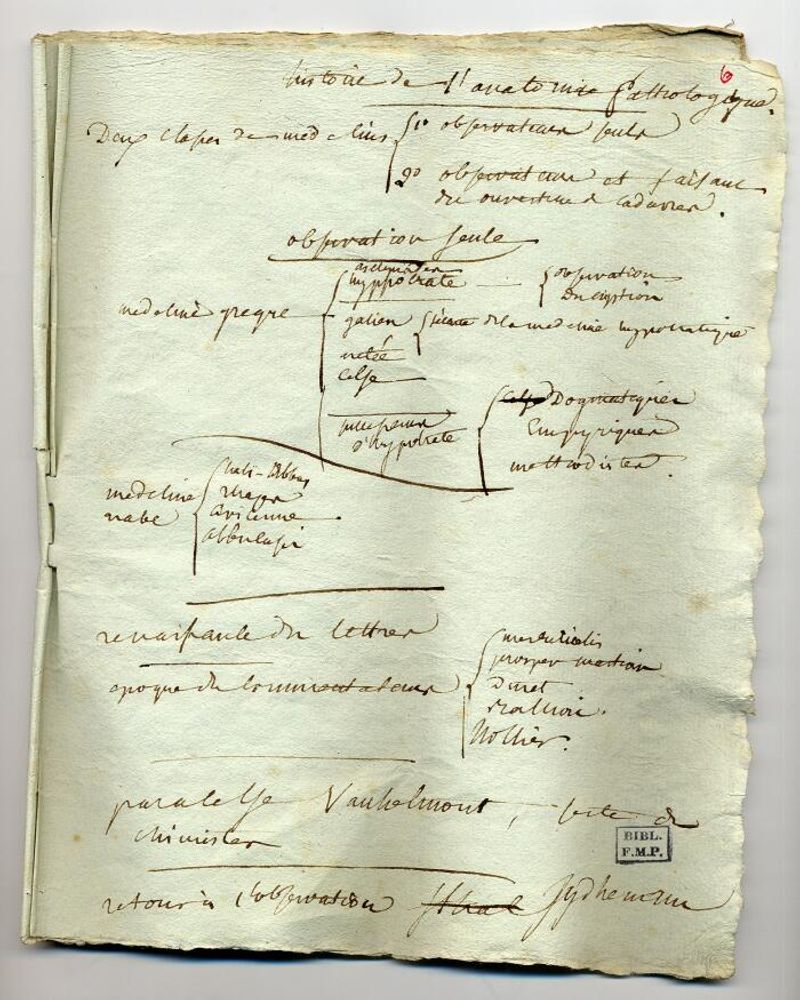 6
histoire de l'anatomie Pathologique.
Deux classes de medecins { 1º observateurs seuls
2º observateurs et faisant
des ouvertures de cadavres.
observation seule
asclepiades
medecine greque { hyppocrate ... { observation
du cistion
galien { science de la medecine hyppocratique
aretée
celse
successeurs d'hypocrate { Dogmatiques
Empyriques
methodistes.
medecine arabe { hali-Abbas
rhases
avicenne
albucasis
renaissance des lettres
epoque des commentateurs { mercurialis
prosper martian
Duret
Hollier.
paracelse Vanhelmont, secte de
chimistes
BIBL.
F.M.P.
retour à l'observation sthal sydhenam